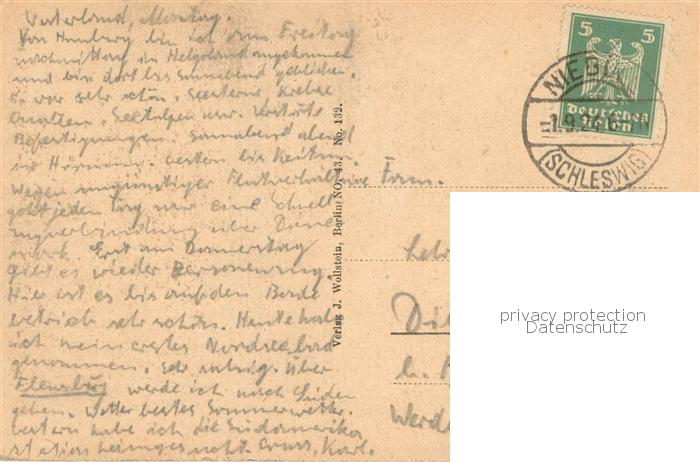 Westerland, Montag.
Von Hamburg bin ich am Freitag
nachmittag in Helgoland angekommen
und bin dort bis Sonnabend geblieben.
Es war sehr schön. Seesterne, Krebse
Quallen, Seetulpen usw. Zerstörte
Befestigungen. Sonnabend abend
in Hörnum. Gestern bis Keitum.
Wegen ungünstiger Flutverhältnisse
geht jeden Tag nur eine Schnell
zugverbindung über Däne
mark. Erst am Donnerstag
gibt es wieder Personenzug.
Hier ist es bis auf den Bade
betrieb sehr schön. Heute habe
ich mein erstes Nordseebad
genommen. Sehr ruhig. Über
Flensburg werde ich nach Süden
gehen. Wetter bestes Sommerwetter.
Gestern habe ich die Südamerika
station
Gruss, Karl.
Verlag J. Wollstein, Berlin NO. 43. No. 132.
5 5
Deutsches Reich
NIEBÜ
1.9.24
(SCHLESWIG)
Fam.
Leh
Di
b.
Werd
privacy protection
Datenschutz